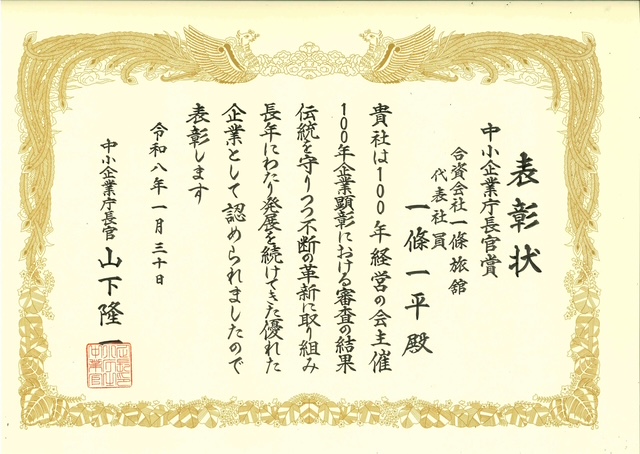 表彰状
中小企業庁長官賞
合資会社一條旅館
代表社員
一條一平殿
貴社は100年経営の会主催
100年企業顕彰における審査の結果
伝統を守りつつ不断の革新に取り組み
長年にわたり発展を続けてきた優れた
企業として認められましたので
表彰します
令和八年一月三十日
中小企業庁長官 山下隆一